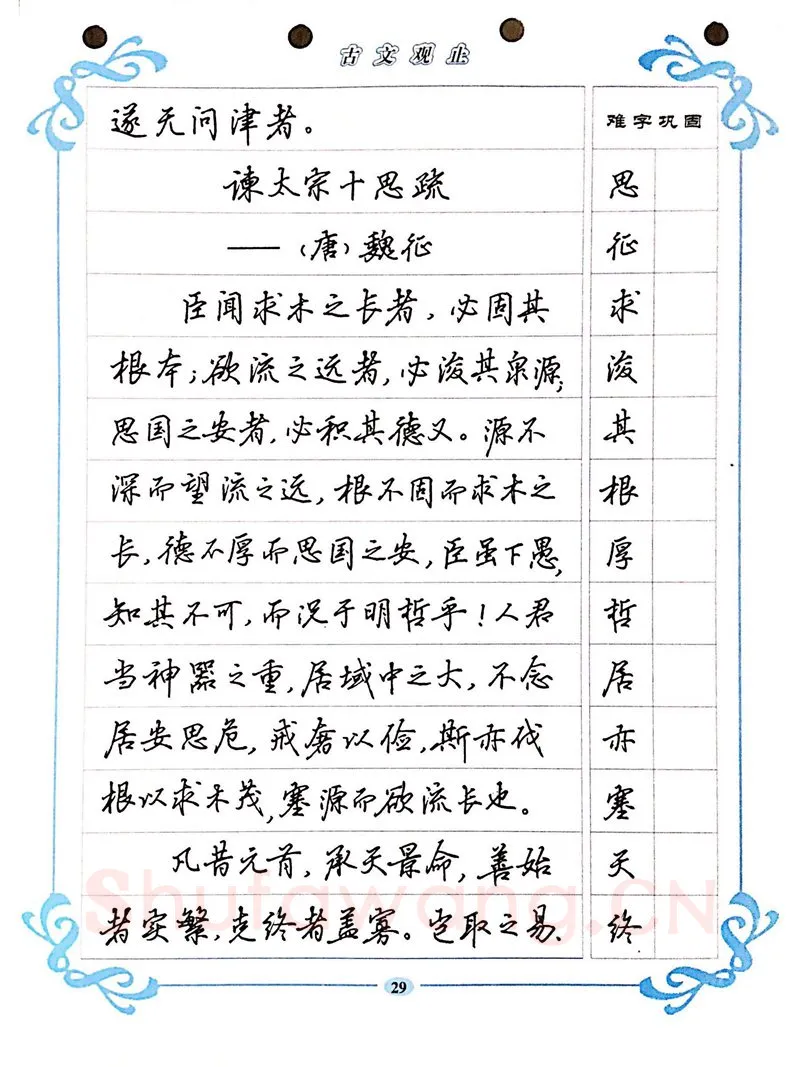 古文观止
遂无问津者。
谏太宗十思疏
——(唐)魏征
臣闻求木之长者,必固其
根本;欲流之远者,必浚其泉源;
思国之安者,必积其德义。源不
深而望流之远,根不固而求木之
长,德不厚而思国之安,臣虽下愚,
知其不可,而况于明哲乎!人君
当神器之重,居域中之大,不念
居安思危,戒奢以俭,斯亦伐
根以求木茂,塞源而欲流长也。
凡昔元首,承天景命,善始
者实繁,克终者盖寡。岂取之易、
难字巩固
思
征
求
浚
其
根
厚
哲
居
亦
塞
天
终
29
Shufawang.CN